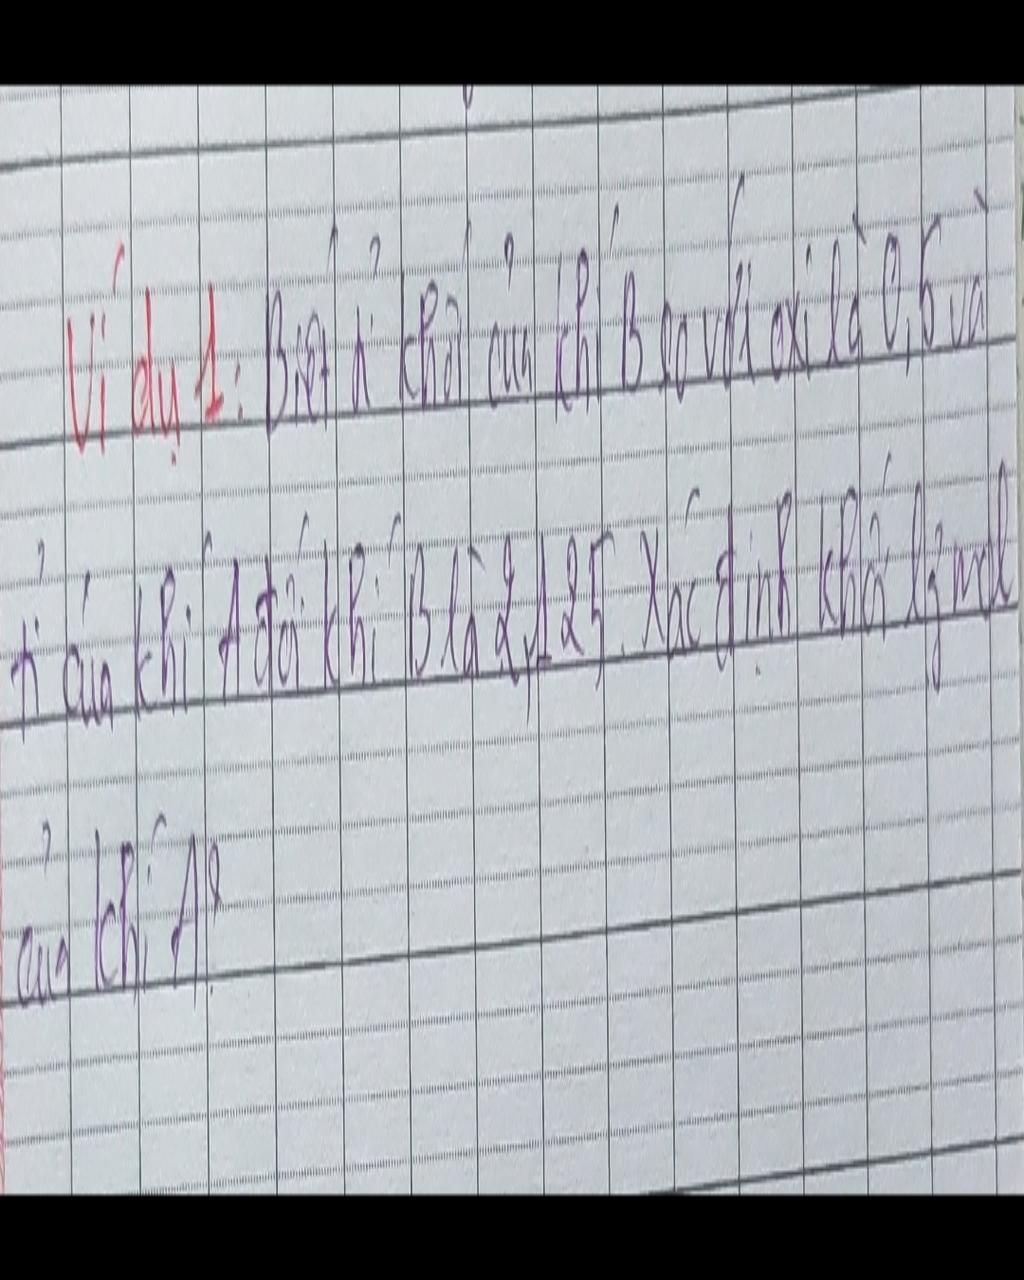 Ví dụ 1: Biết tỉ khối của khí B so với oxi là 0,5 và
tỉ của khí A đối khí B là 2,125. Xác định khối lg mol
của khí A?